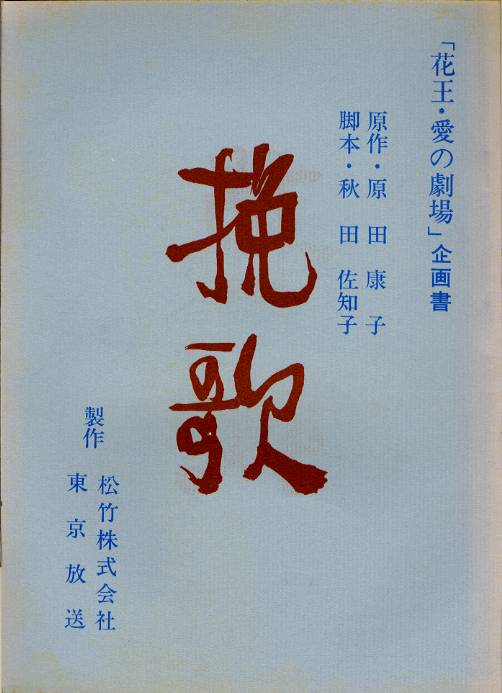 「花王・愛の劇場」企画書
原作・原田康子
脚本・秋田佐知子
挽歌
製作
松竹株式会社
東京放送